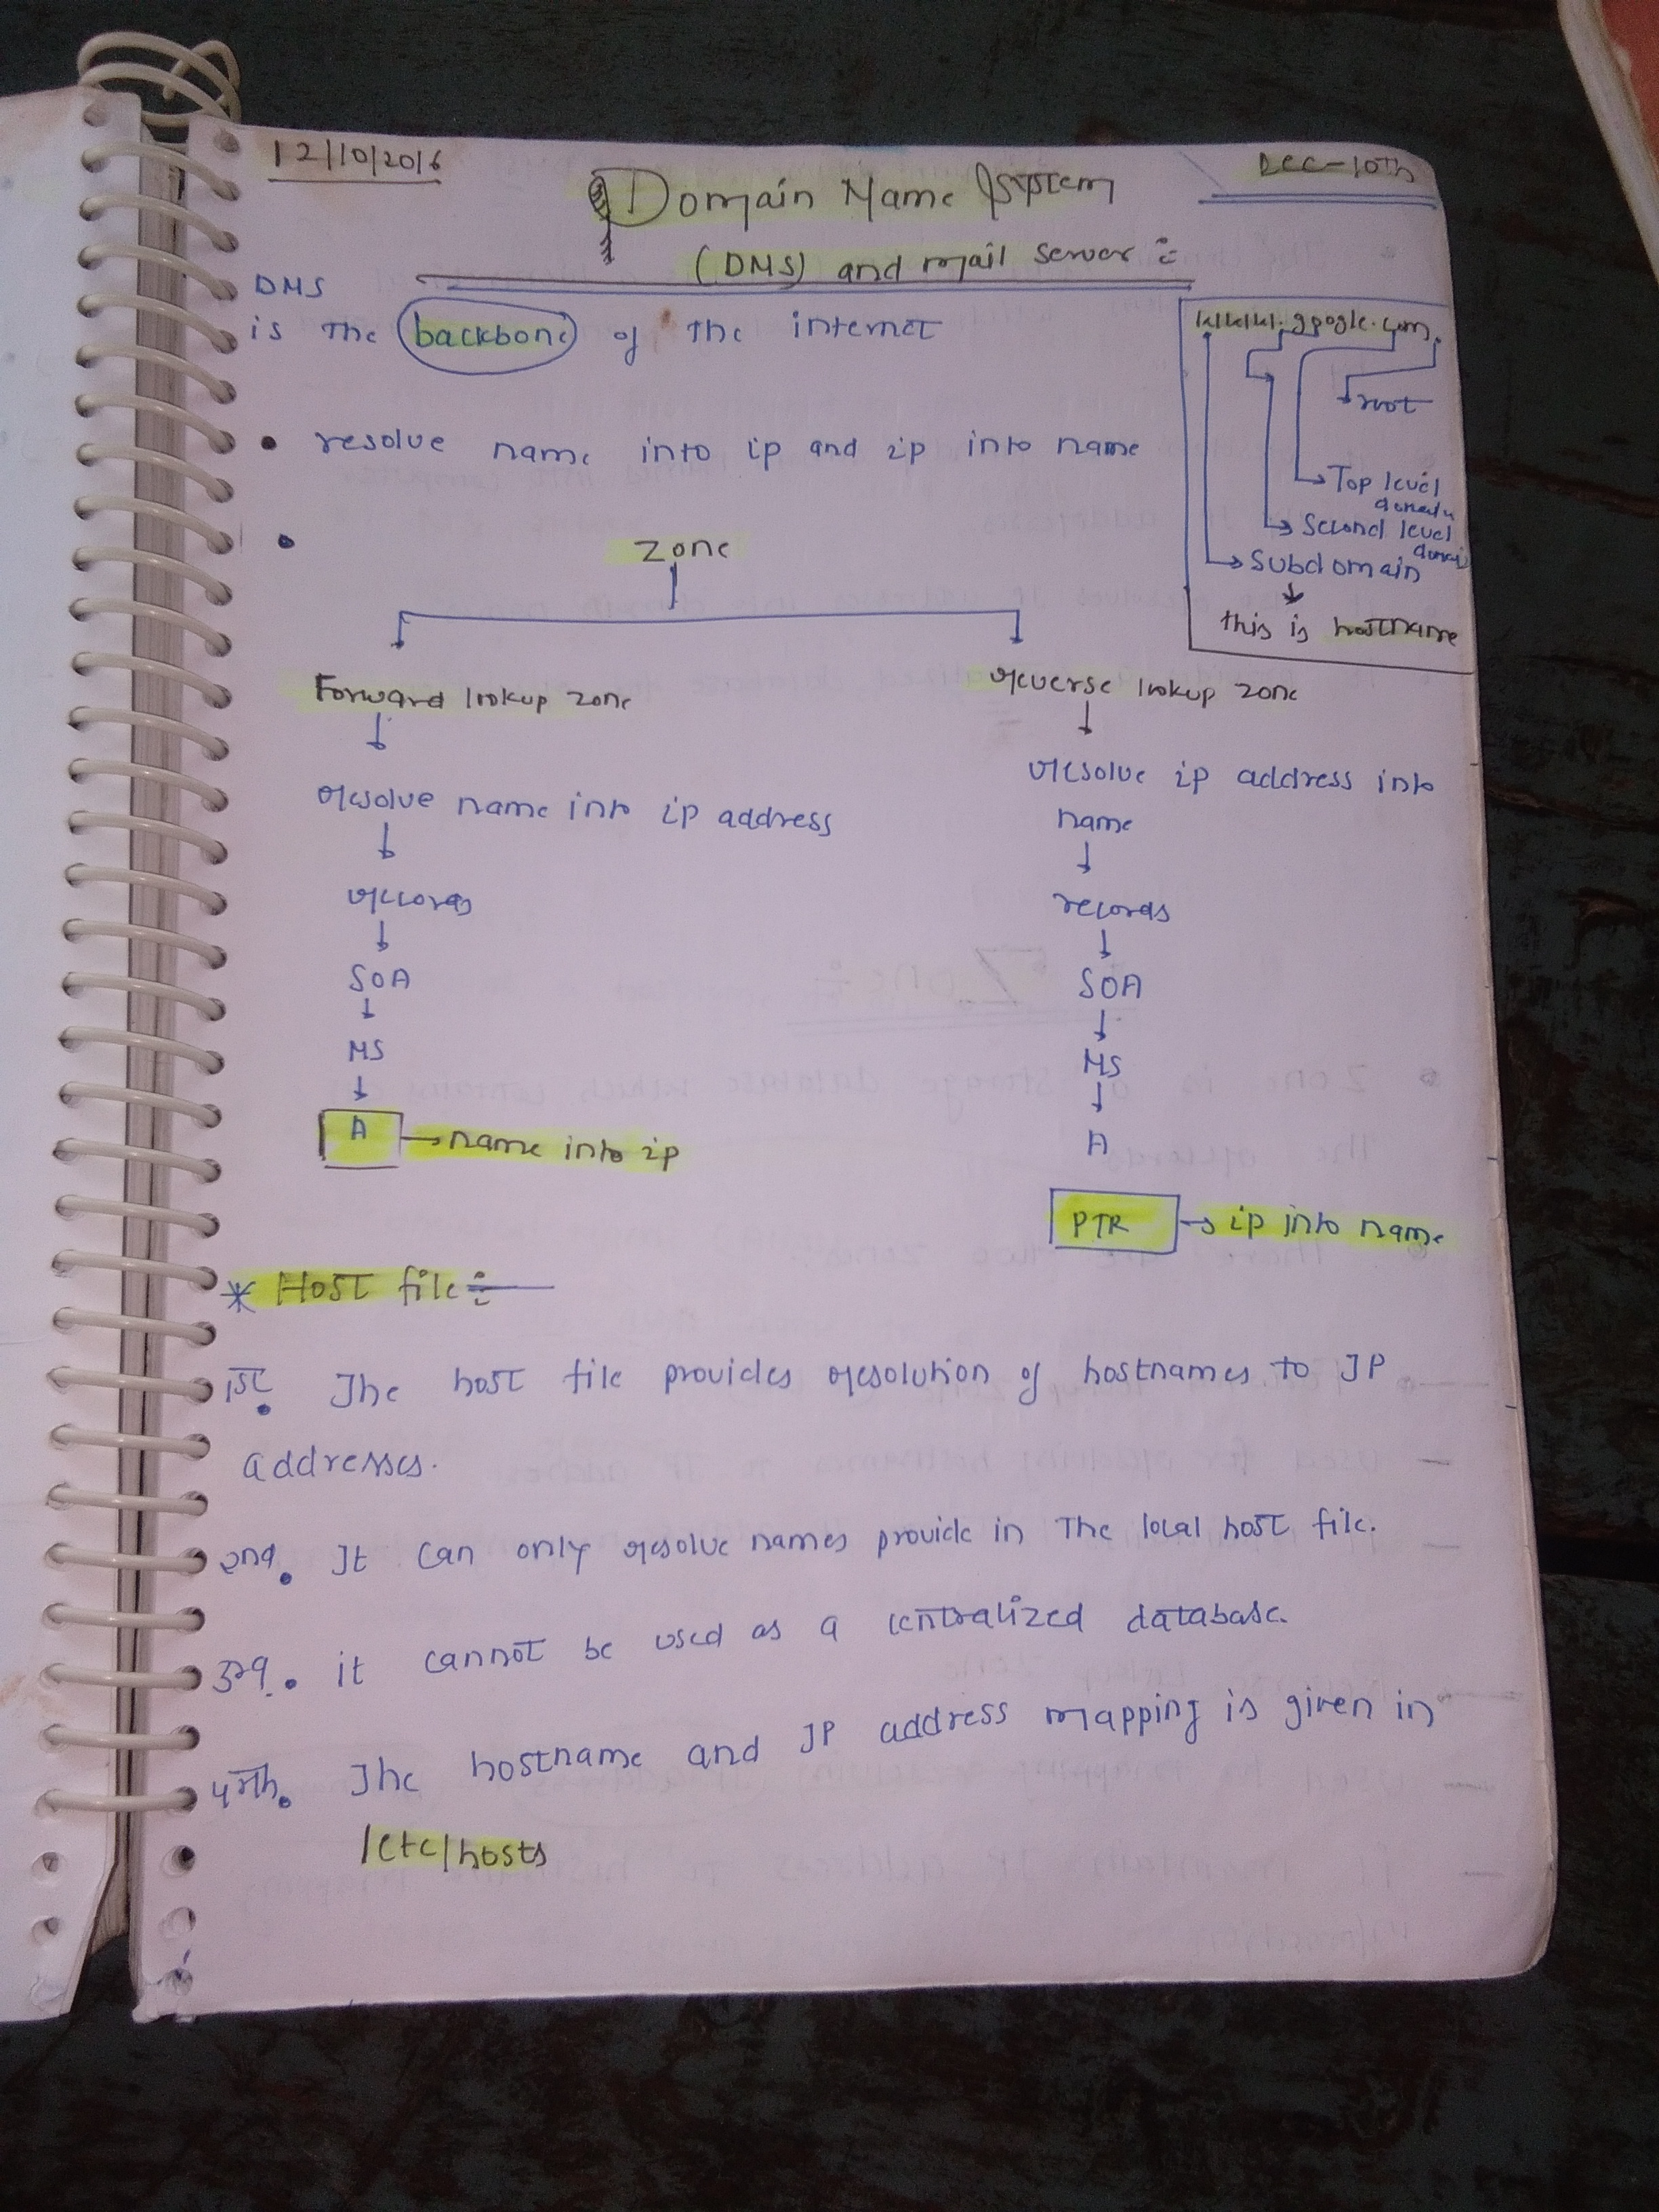 12/10/2016
Dec-10Th
Domain Name System
(DNS) and mail server :-
DNS
is The backbone of The internet
www.google.com.
root
Top level
domain
Second level
domain
Subdomain
this is hostname
• resolve name into ip and ip into name
• Zone
Forward lookup zone
reverse lookup zone
resolve name into ip address
resolve ip address into
name
records
records
SOA
SOA
NS
NS
A → name into ip
A
PTR → ip into name
* Host file :-
1st. The host file provides resolution of hostnames to IP
addresses.
2nd. It can only resolve names provide in The local host file.
3rd. it cannot be used as a centralized database.
4rth. The hostname and IP address mapping is given in
/etc/hosts